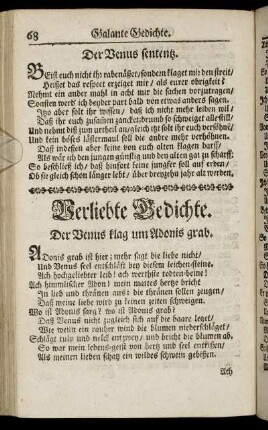 68 Galante Gedichte.
Der Venus sententz.
Beist euch nicht ihr rabenäßer/sondern klaget mir den streit/
Heisset das respect erzeiget mir/ als eurer obrigkeit?
Nehmt ein ander mahl in acht mir die sachen vorzutragen/
Sonsten werd' ich beyder part bald von etwas anders sagen.
Itzo aber solt ihr wissen/ daß ich nicht mehr leiden wil/
Daß ihr euch zusammen zancket/drumb so schweiget allestill/
Und nehmt diß zum urtheil an/gleich itzt solt ihr euch versöhnt/
Und kein böses lästermaul soll die andre mehr verhöhnen.
Daß indessen aber keine von euch alten klagen darff/
Als wär ich den jungen günstig und den alten gar zu scharff;
So beschließ ich/ daß hinfort keine jungfer soll auf erden/
Ob sie gleich schon länger lebt/ über dreyzehn jahr alt werden.
Verliebte Gedichte.
Der Venus klag um Adonis grab.
Adonis grab ist hier; mehr sagt die liebe nicht/
Und Venus seel entschläfft bey diesem leichen-steine.
Ach hochgeliebter leid! ach werthste todten-beine!
Ach himmlischer Adon! mein mattes hertze bricht
In lieb und thränen aus: die thränen sollen zeugen/
Daß meine liebe wird zu keinen zeiten schweigen.
Wo ist Adonis sarg? wo ist Adonis grab?
Daß Venus nicht zugleich sich auf die baare leget/
Wie wenn ein rauher wind die blumen niederschläget/
Schlägt tulp und nelck entzwey/ und bricht die blumen ab.
So war mein lebens-geist von hertz und seel entrissen/
Als meinen lieben schatz ein wildes schwein gebissen.
Ach